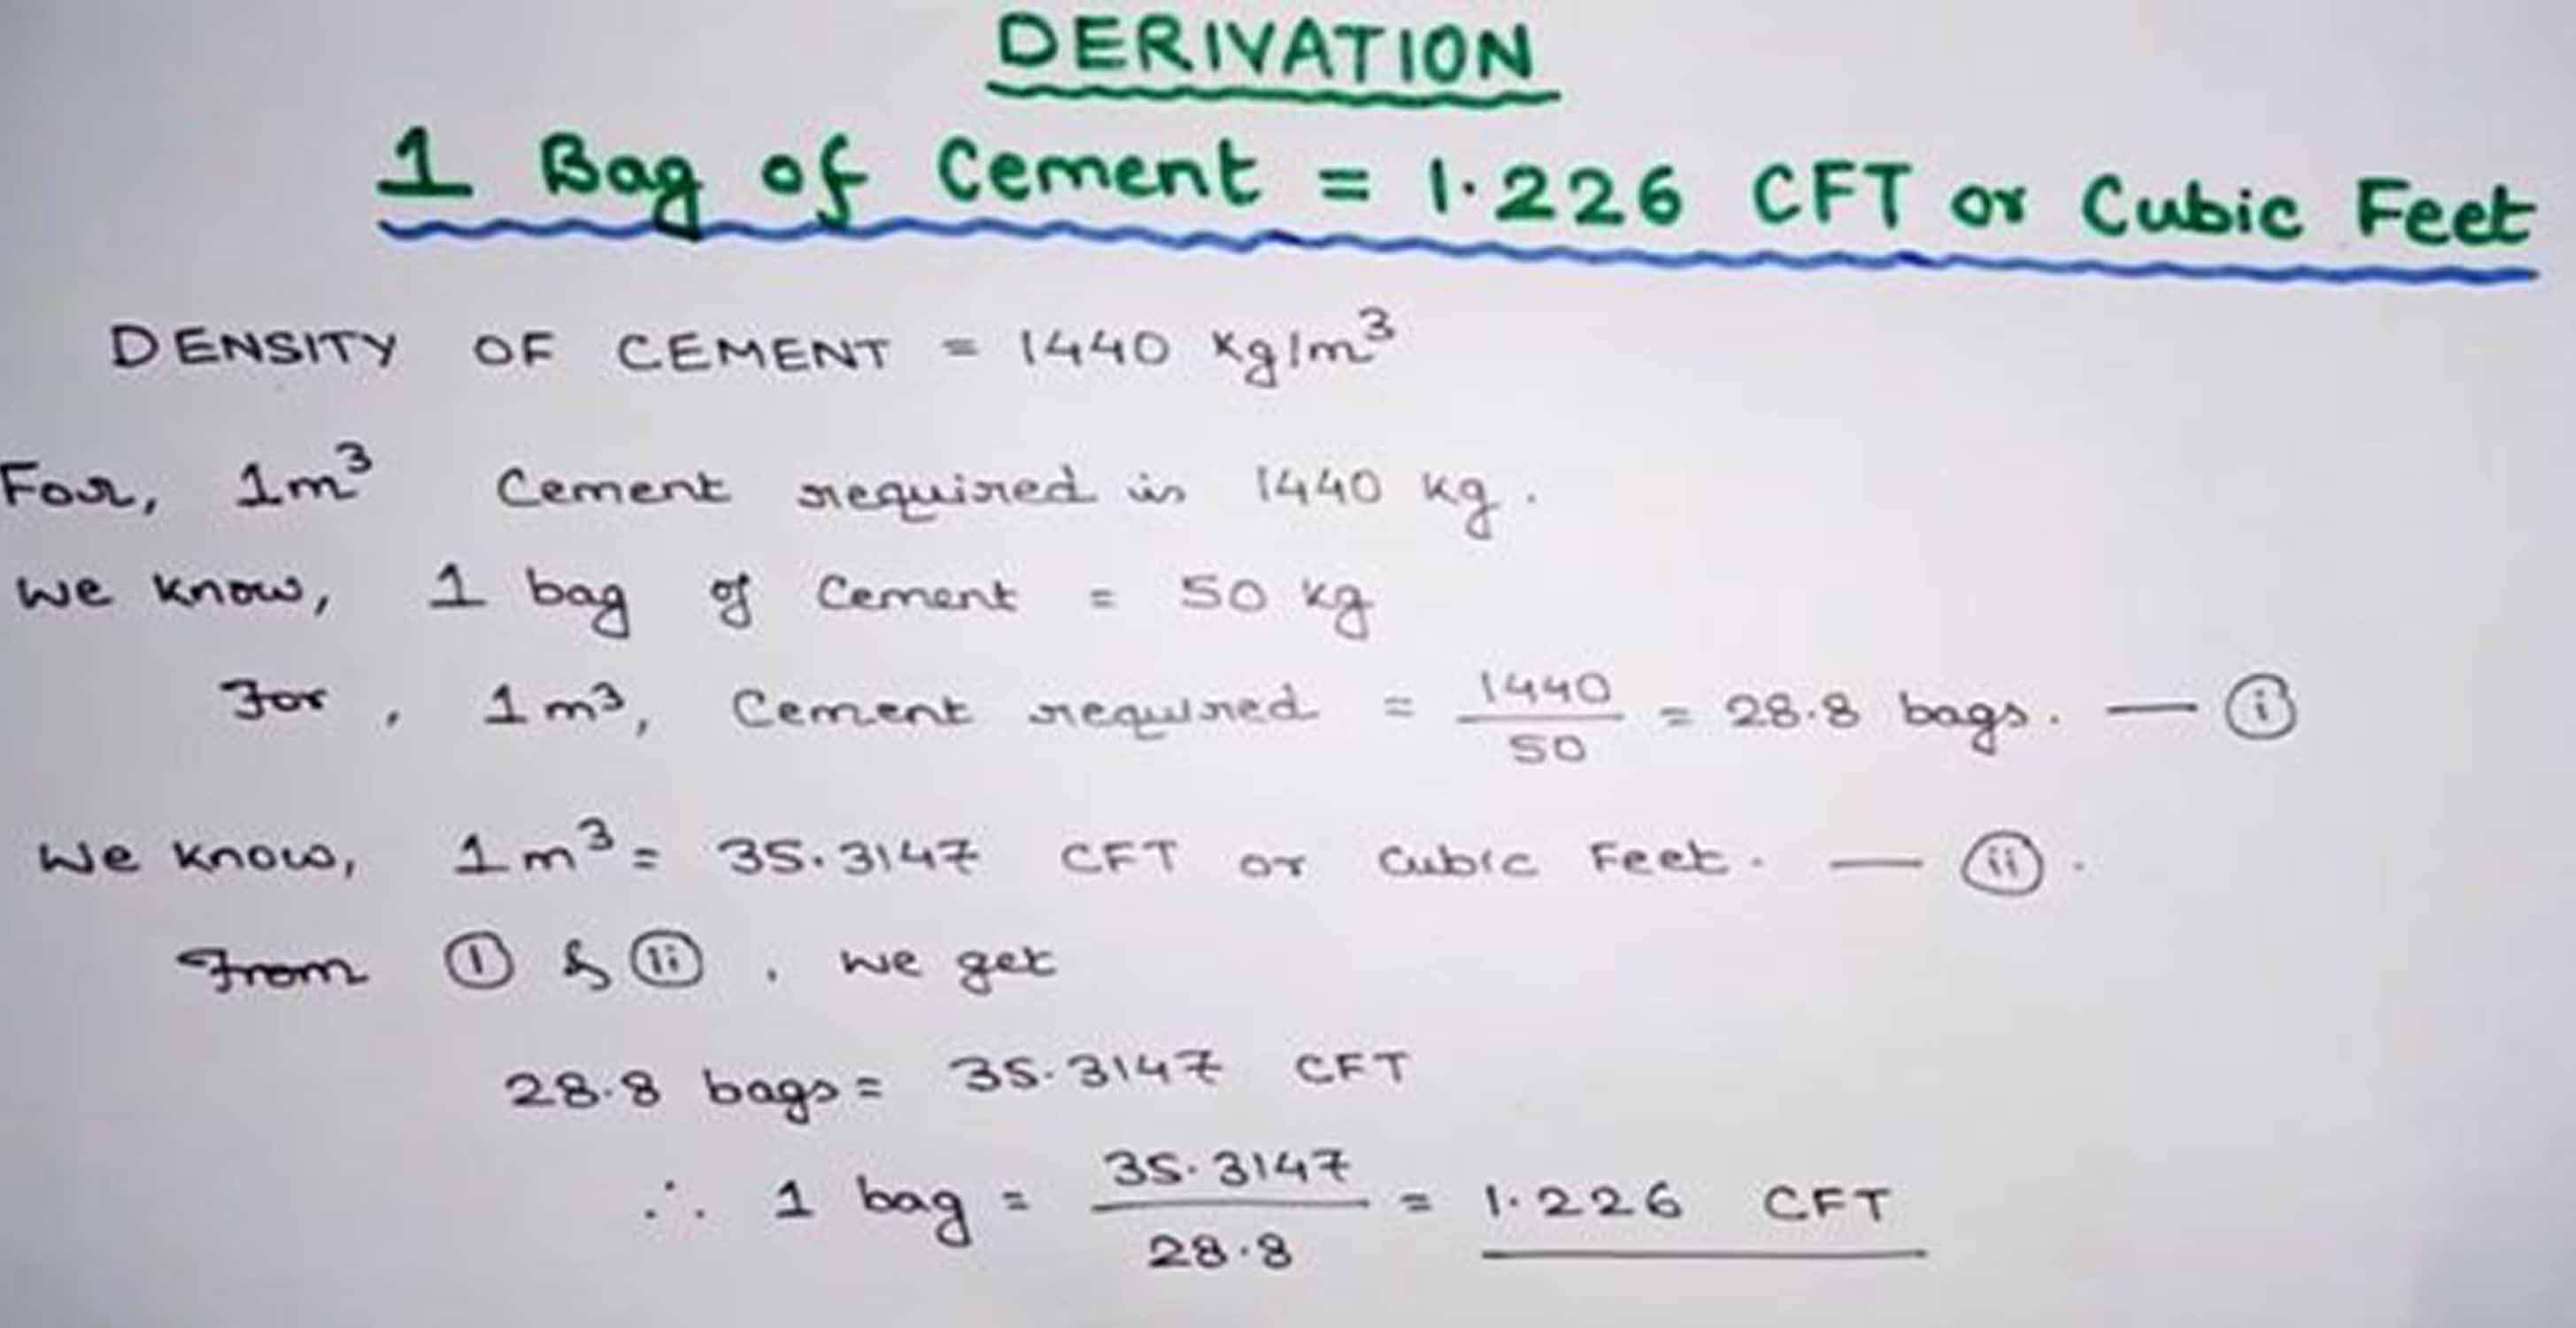 DERIVATION
1 Bag of Cement = 1.226 CFT or Cubic Feet
DENSITY OF CEMENT = 1440 Kg/m³
For, 1m³ Cement required is 1440 kg.
We know, 1 bag of Cement = 50 kg
For, 1m³, Cement required = 1440/50 = 28.8 bags. — (i)
We know, 1m³ = 35.3147 CFT or Cubic Feet. — (ii).
From (i) & (ii), we get
28.8 bags = 35.3147 CFT
∴ 1 bag = 35.3147/28.8 = 1.226 CFT